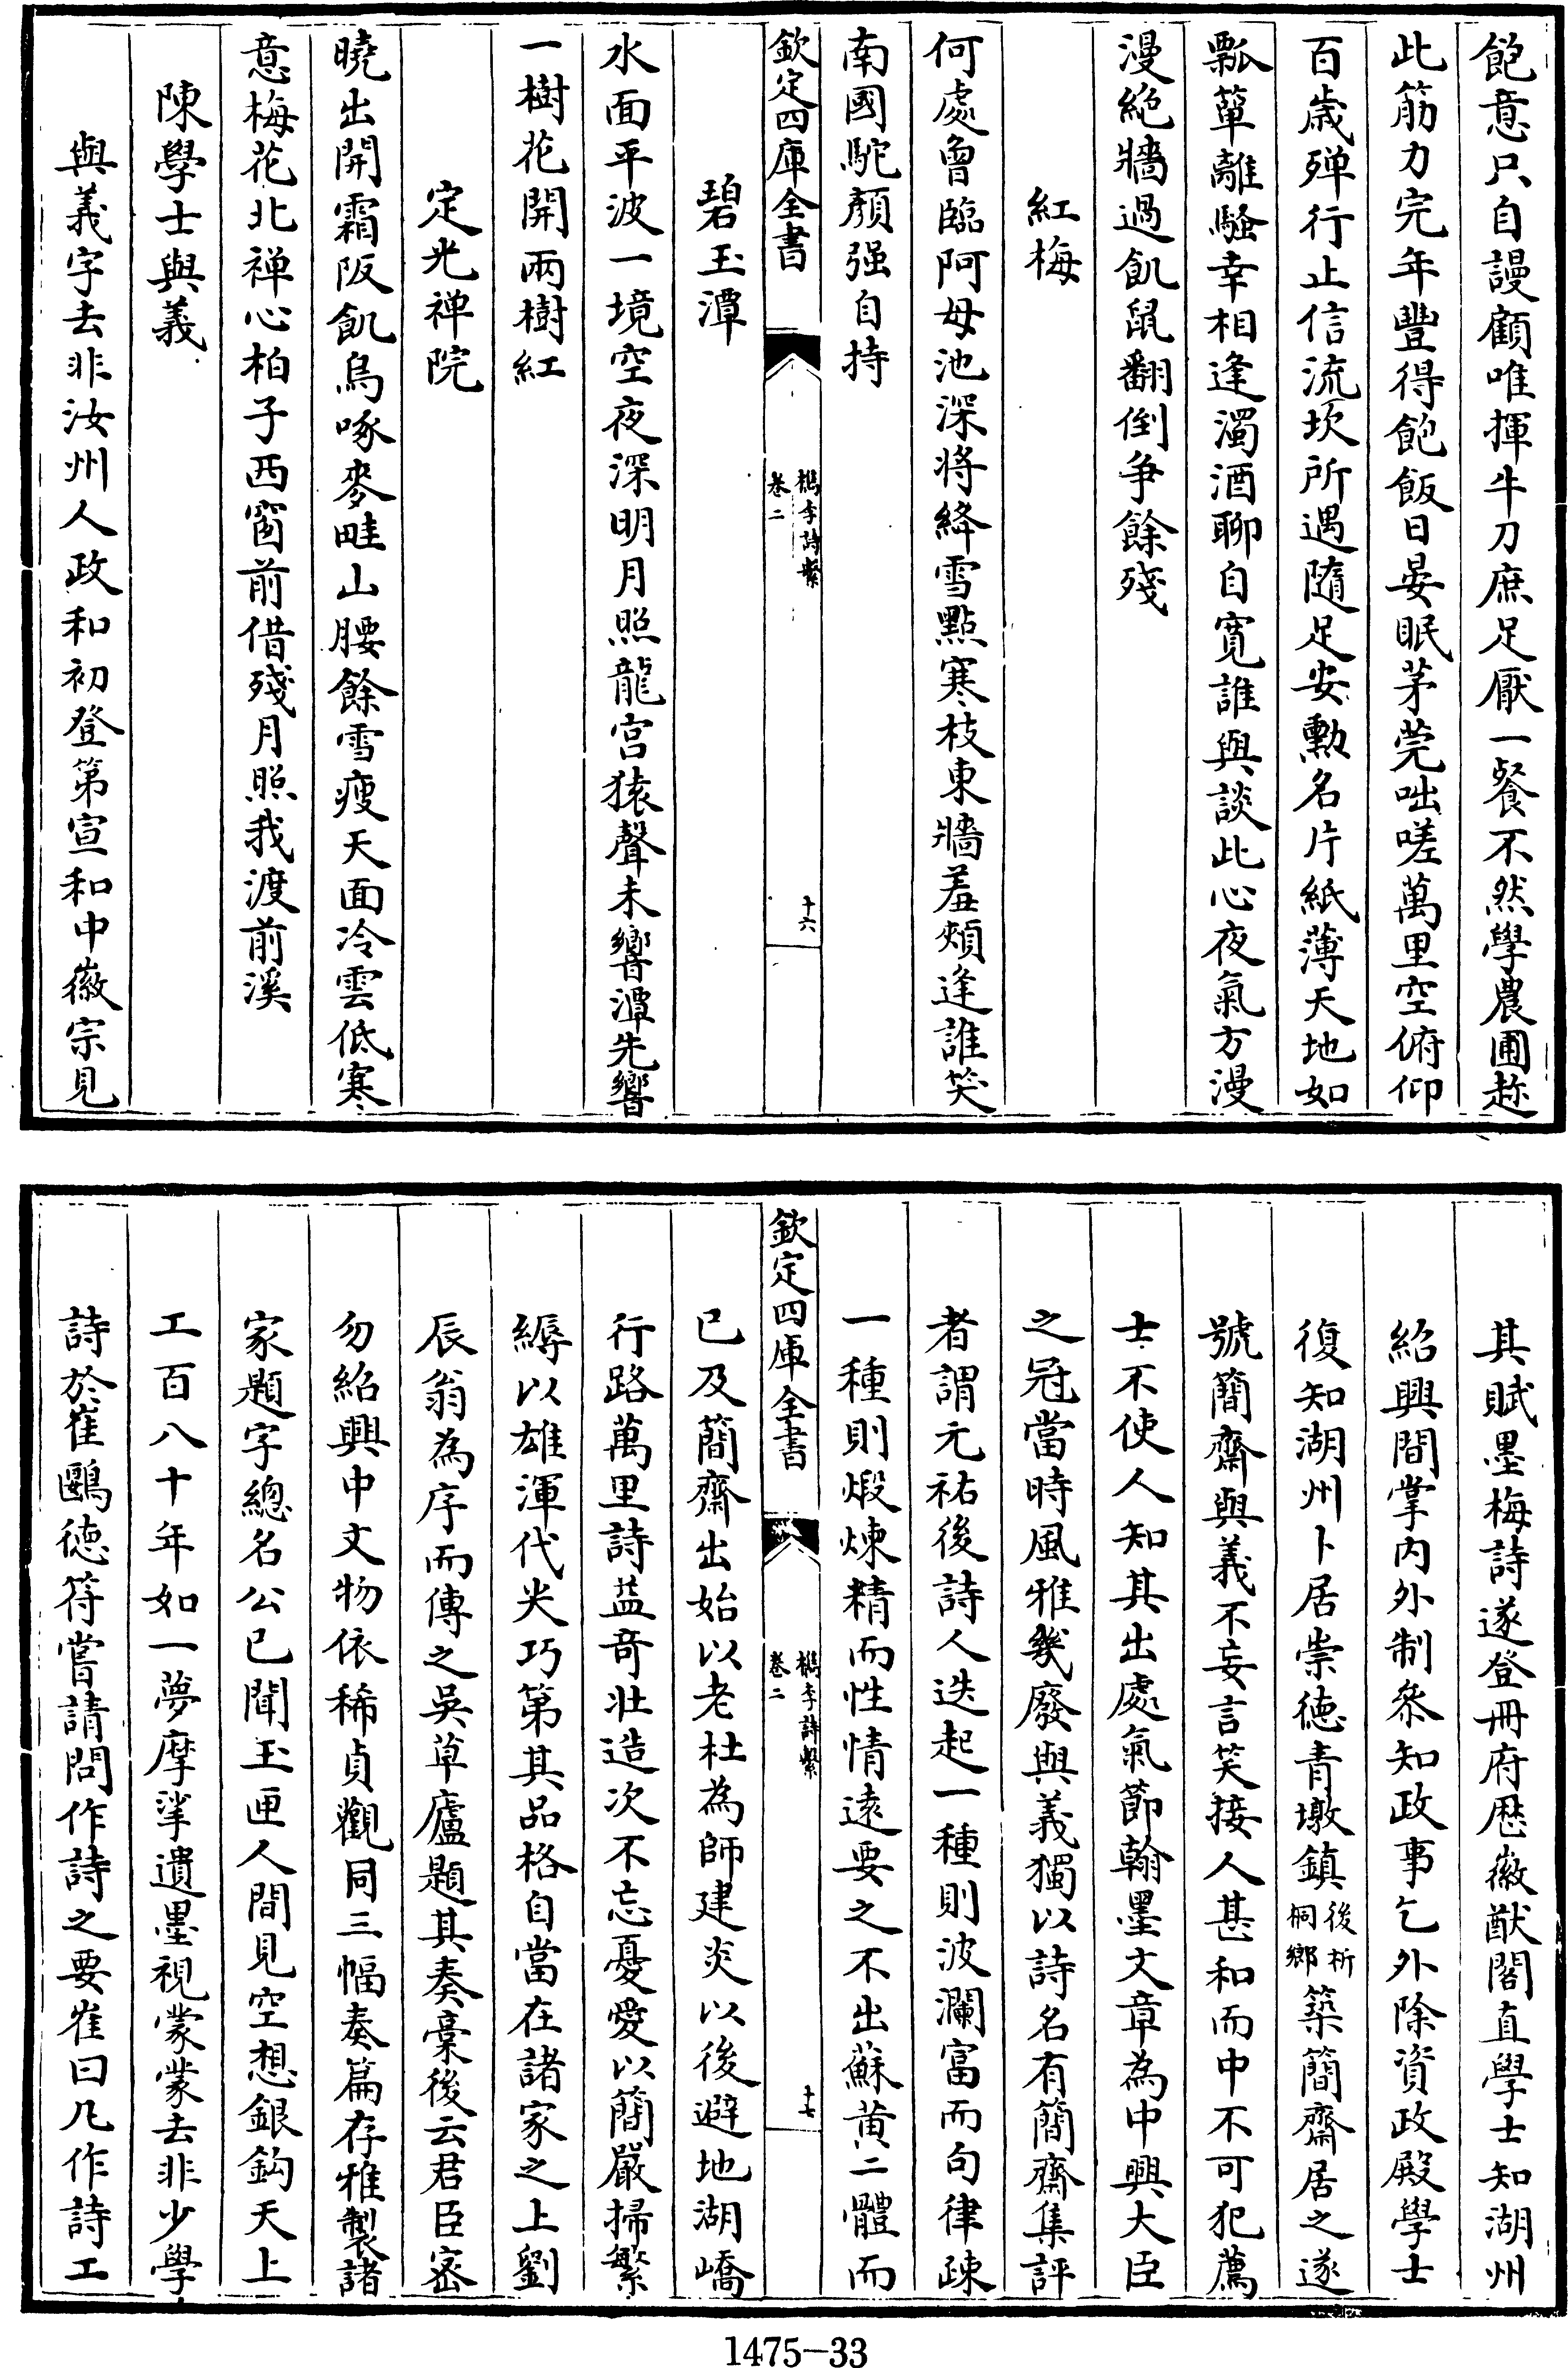 飽意只自謾顧唯揮牛刀庶足厭一餐不然學農圃趂
此筋力完年豐得飽飯日晏眠茅莞咄嗟萬里空俯仰
百歲殫行止信流坎所遇隨足安勲名片紙薄天地如
瓢簞離騷幸相逢濁酒聊自寛誰與談此心夜氣方漫
漫絶牆過飢鼠翻倒争餘殘
紅梅
何處曾臨阿母池深將絳雪點寒枝東牆羞頰逢誰笑
南國駝顏强自持
欽定四庫全書
檇李詩繫
卷二
十六
碧玉潭
水面平波一境空夜深明月照龍宮猿聲未響潭先響
一樹花開兩樹紅
定光禪院
曉出開霜阪飢烏啄麥畦山腰餘雪瘦天面冷雲低寒
意梅花北禪心柏子西窗前借殘月照我渡前溪
陳學士與義
與義字去非汝州人政和初登第宣和中徽宗見
其賦墨梅詩遂登冊府歴徽猷閣直學士知湖州
紹興間掌内外制叅知政事乞外除資政殿學士
復知湖州卜居崇德青墩鎮後析桐鄉築簡齋居之遂
號簡齋與義不妄言笑接人甚和而中不可犯薦
士不使人知其出處氣節翰墨文章為中興大臣
之冠當時風雅幾廢與義獨以詩名有簡齋集評
者謂元祐後詩人迭起一種則波瀾富而句律疎
一種則煅煉精而性情逺要之不出蘇黄二體而
欽定四庫全書
檇李詩繫
卷二
十七
已及簡齋出始以老杜為師建炎以後避地湖嶠
行路萬里詩益奇壯造次不忘憂愛以簡嚴掃繁
縟以雄渾代尖巧第其品格自當在諸家之上劉
辰翁為序而傳之吳草廬題其奏稾後云君臣宻
勿紹興中文物依稀貞觀同三幅奏篇存雅製諸
家題字總名公已聞玉匣人間見空想銀鈎天上
工百八十年如一夢摩挲遺墨視蒙蒙去非少學
詩於崔鷗德符嘗請問作詩之要崔曰凡作詩工
1475-33